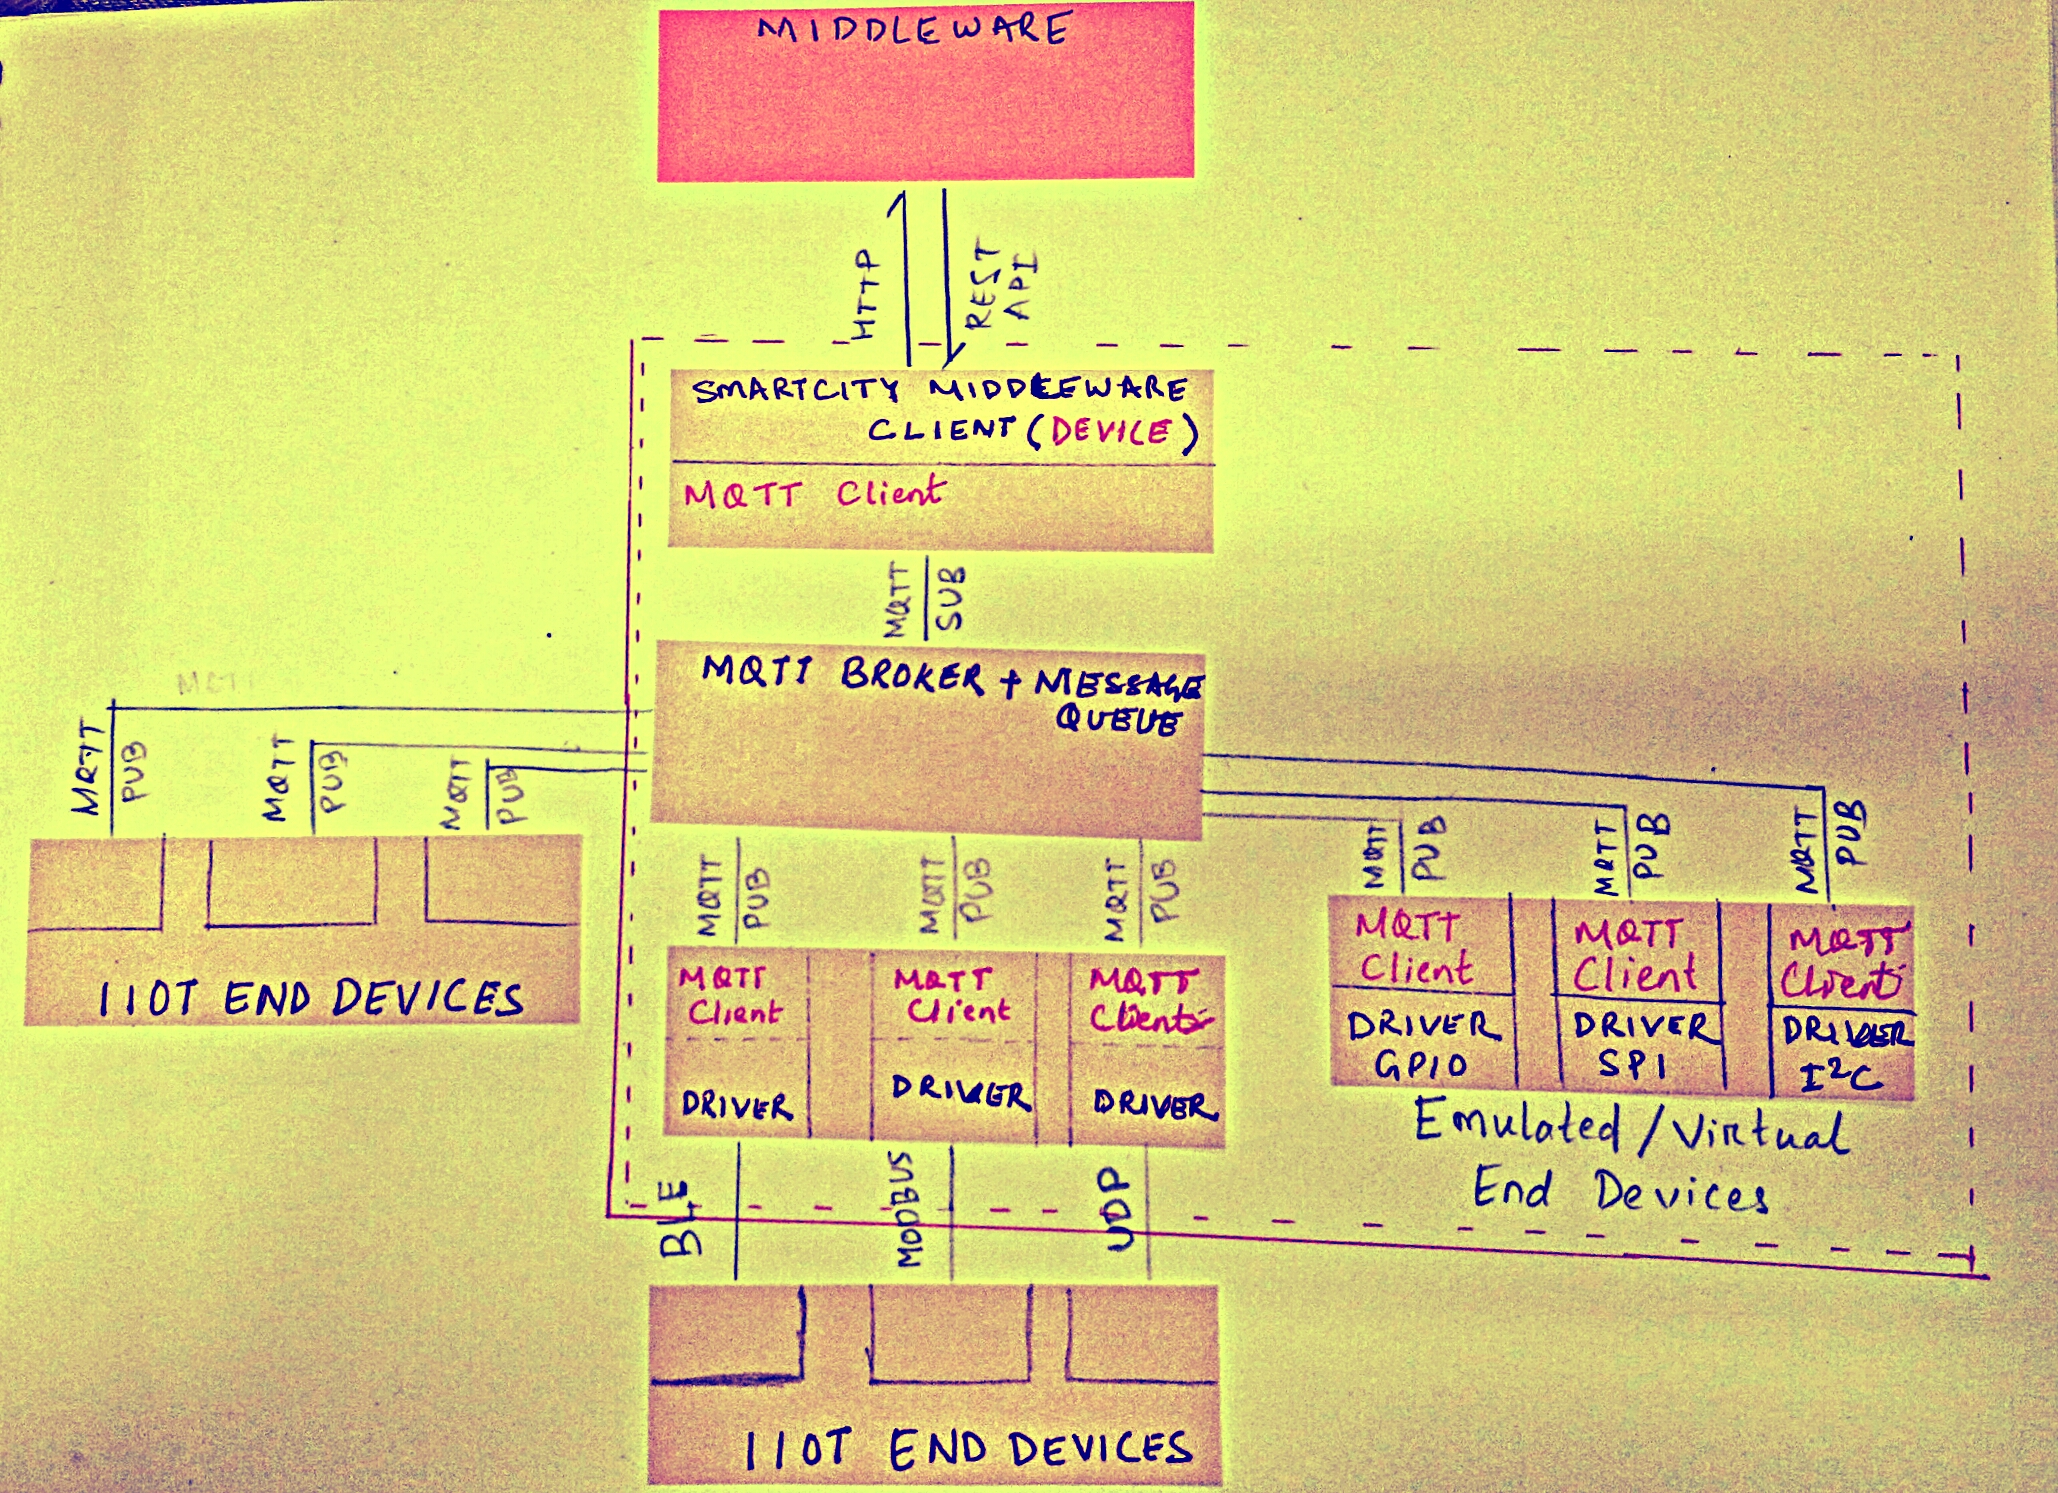 MIDDLEWARE
HTTP
REST
API
SMARTCITY MIDDLEWARE
CLIENT (DEVICE)
MQTT Client
MQTT
SUB
MQTT BROKER + MESSAGE
QUEUE
MQTT
PUB
MQTT
PUB
MQTT
PUB
MQTT
PUB
MQTT
PUB
MQTT
PUB
MQTT
PUB
MQTT
PUB
MQTT
PUB
IIOT END DEVICES
MQTT
Client
DRIVER
MQTT
Client
DRIVER
MQTT
Client
DRIVER
MQTT
Client
DRIVER
GPIO
MQTT
Client
DRIVER
SPI
MQTT
Client
DRIVER
I²C
Emulated/Virtual
End Devices
BLE
MODBUS
UDP
IIOT END DEVICES